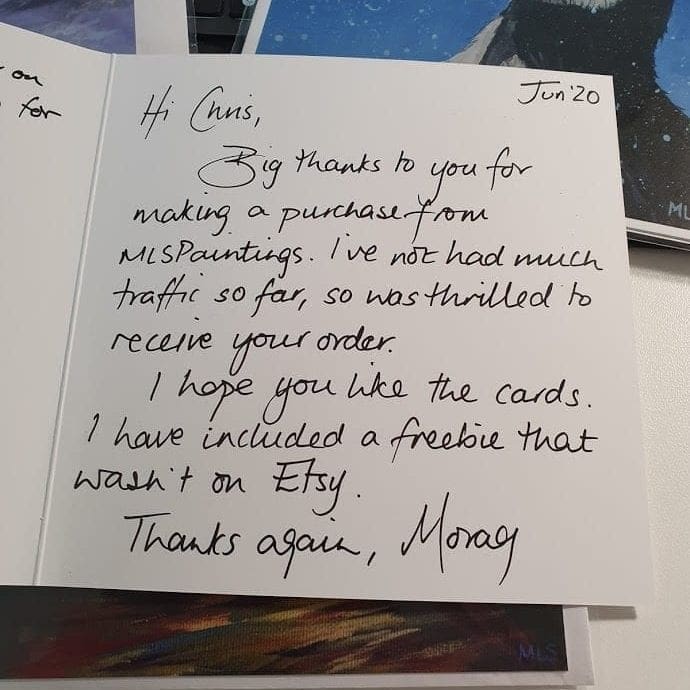 on
for
Jun'20
Hi Chris,
Big thanks to you for
making a purchase from
MLSPaintings. I've not had much
traffic so far, so was thrilled to
receive your order.
I hope you like the cards.
I have included a freebie that
wasn't on Etsy.
Thanks again, Morag
ML
MLS